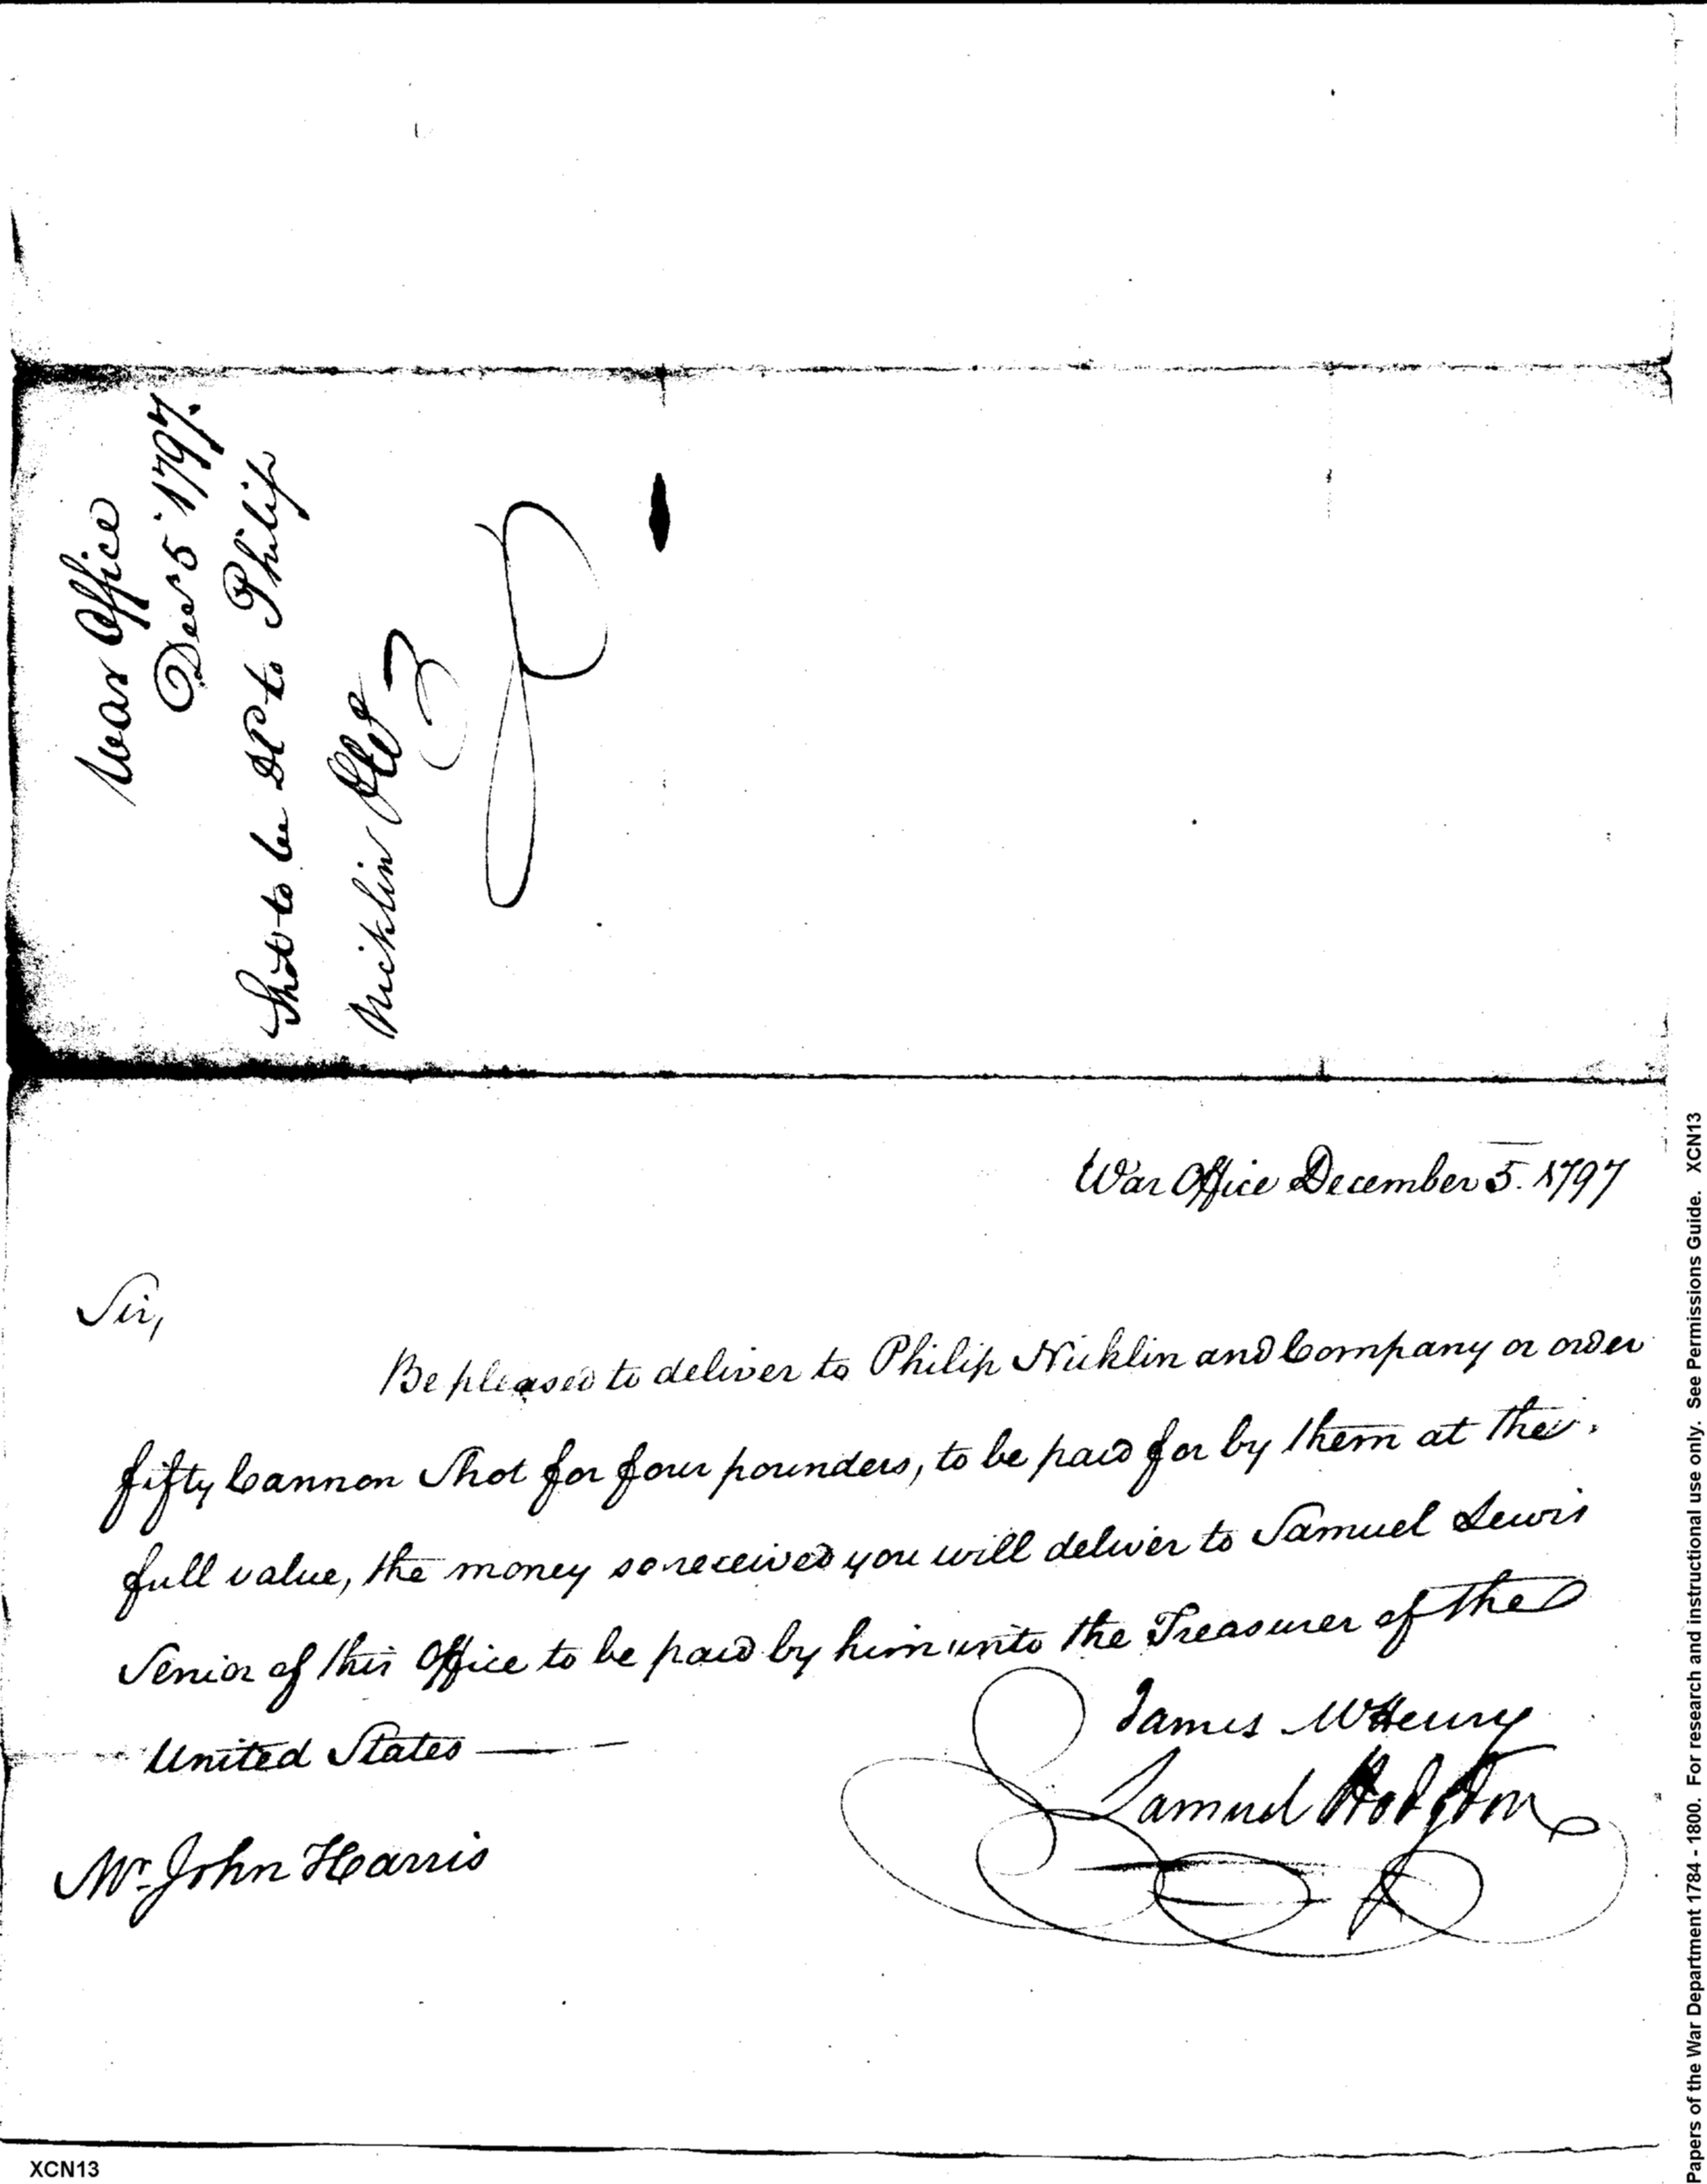 War Office
Decr 5 1797.
Shot to be Dd to Philip
Nicklin & Co
War Office December 5. 1797
Sir,
Be pleased to deliver to Philip Nicklin and Company or order
fifty Cannon Shot for four pounders, to be paid for by them at their
full value, the money so received you will deliver to Samuel Lewis
Senior of this Office to be paid by him into the Treasurer of the
United States
James McHenry
Samuel Hodgdon
Mr. John Harris
Papers of the War Department 1784 - 1800. For research and instructional use only. See Permissions Guide. XCN13
XCN13